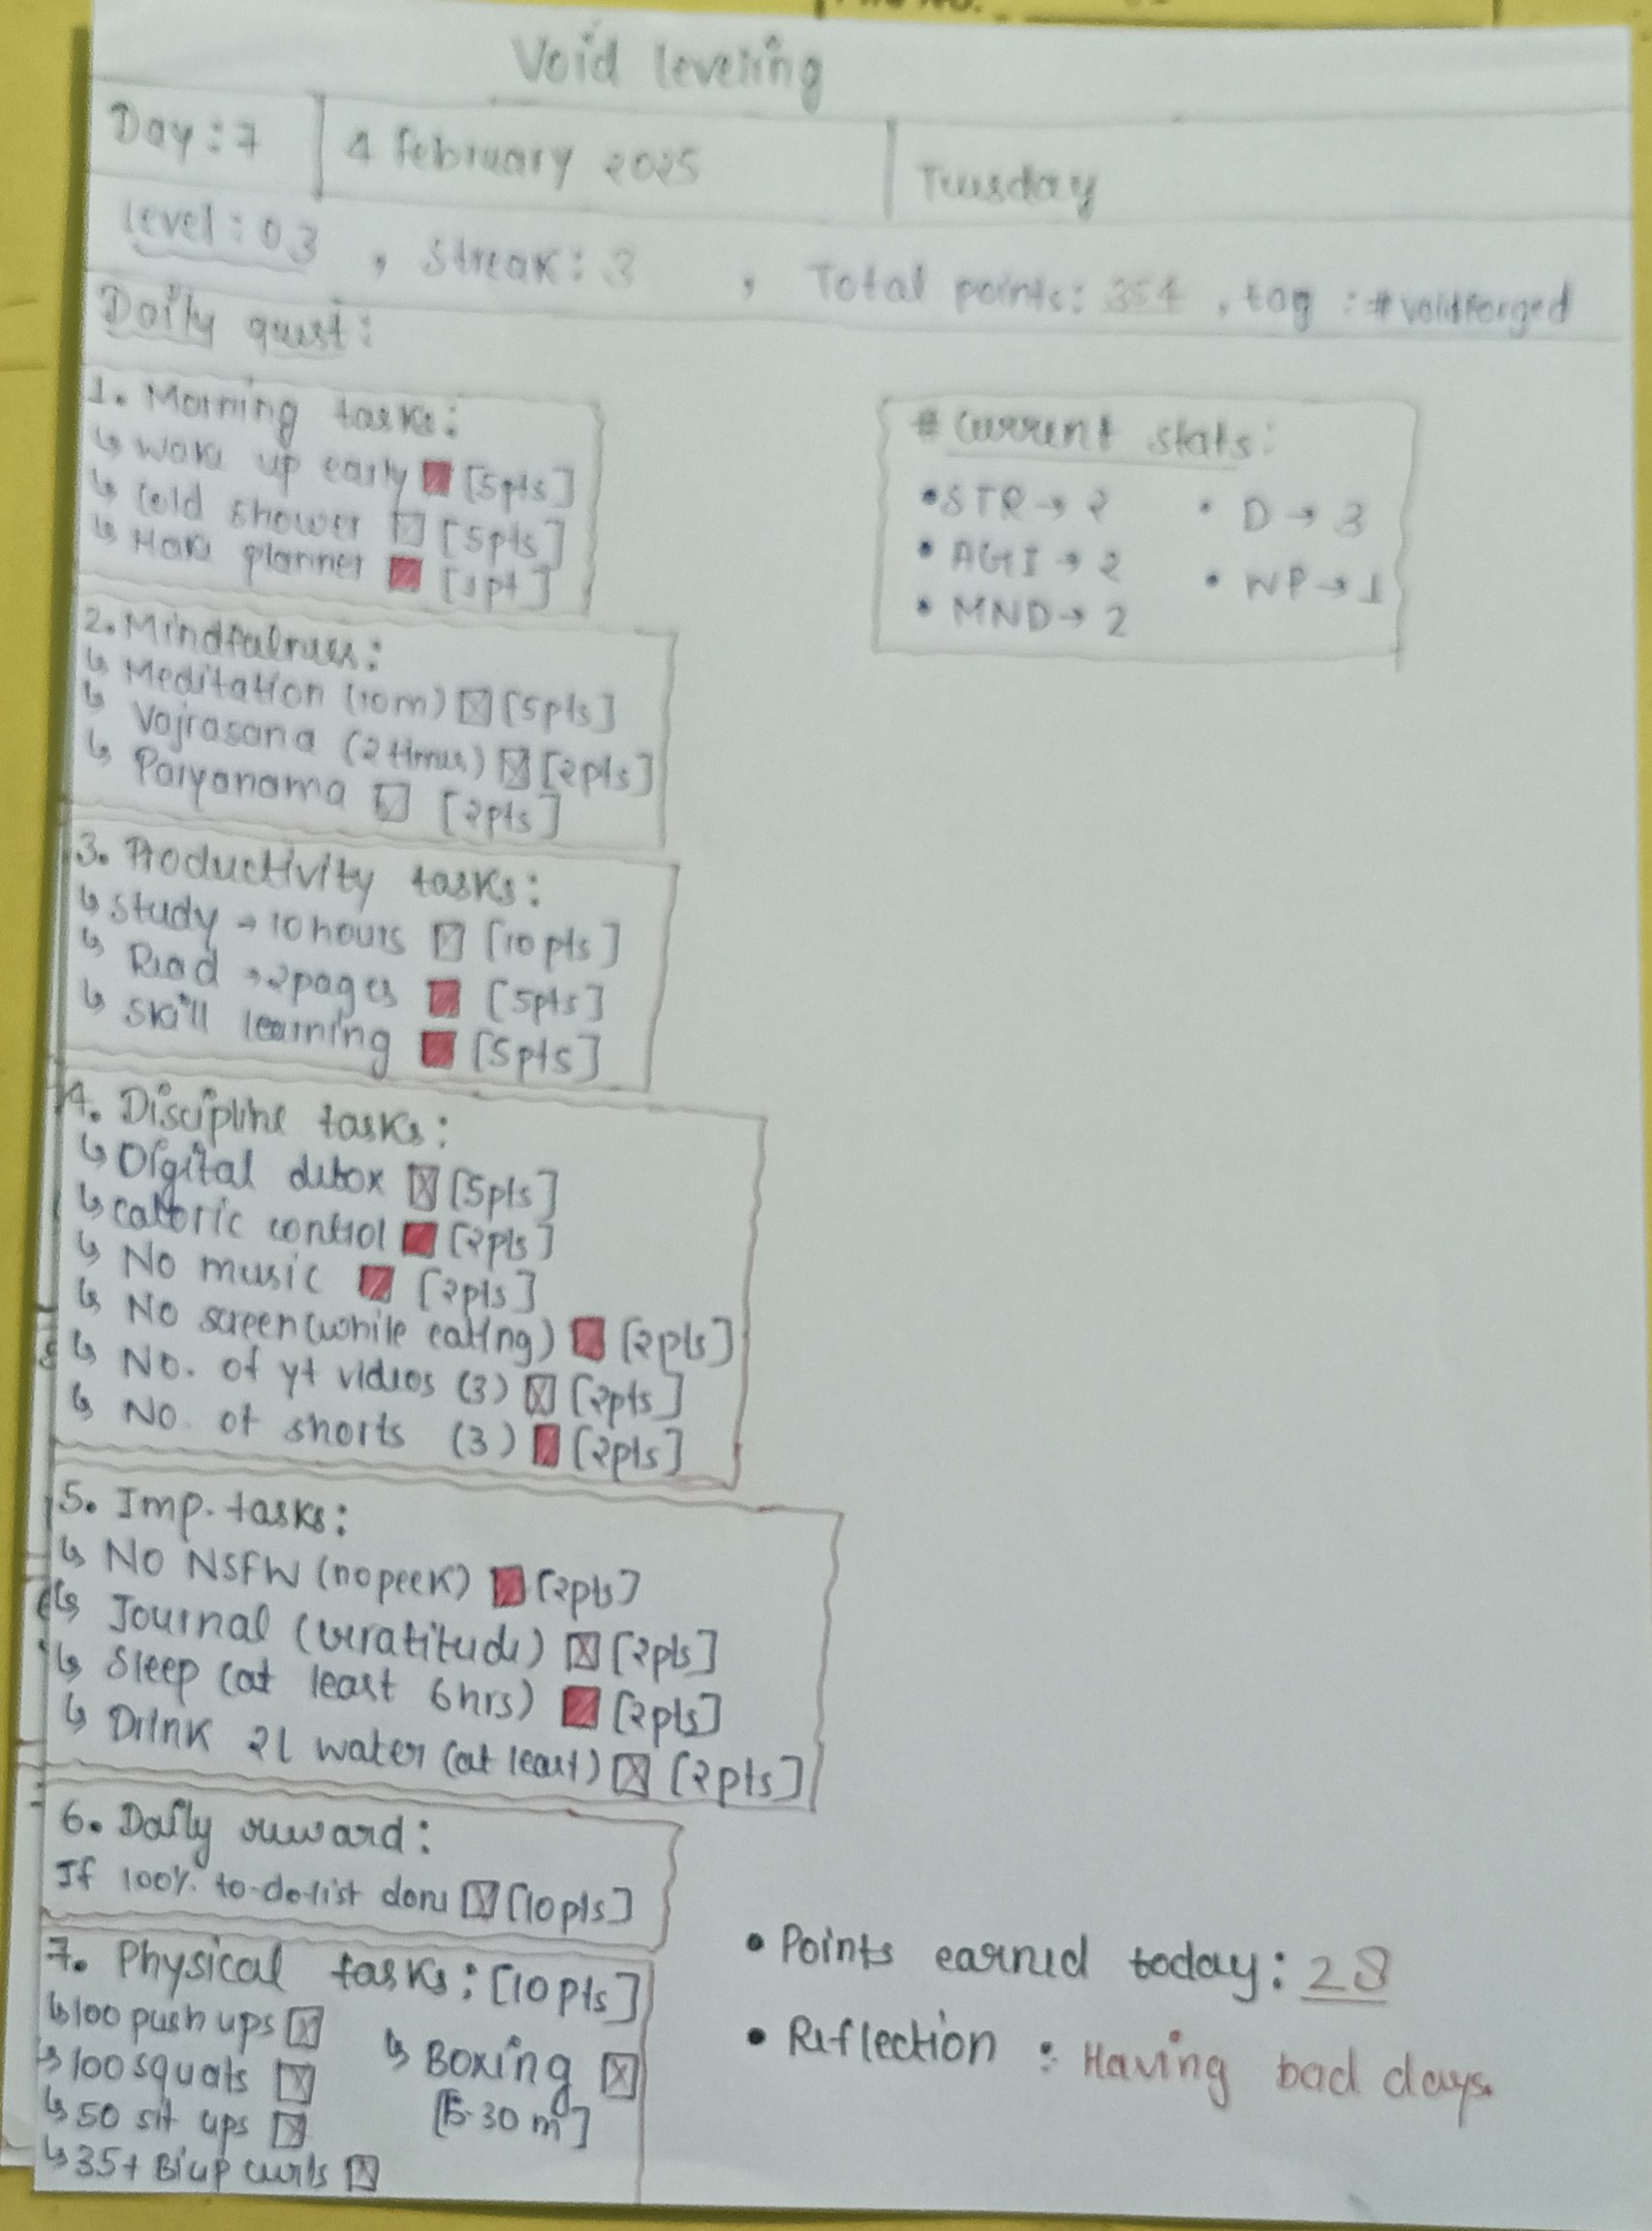 Void leveling
Day: 7 4 February 2025 Tuesday
Level: 03 , Streak: 3 , Total points: 354 , tag : #voidforged
Daily quest:
1. Morning tasks:
↳ Wake up early [5pts]
↳ Cold shower [5pts]
↳ Make planner [1pt]
# Current stats:
• STR → 2 • D → 3
• AGI → 2 • WP → 1
• MND → 2
2. Mindfulness:
↳ Meditation (10m) [5pts]
↳ Vajrasana (2 times) [2pts]
↳ Paryanama [2pts]
3. Productivity tasks:
↳ Study → 10 hours [10 pts]
↳ Read → 2 pages [5pts]
↳ Skill learning [5pts]
4. Discipline tasks:
↳ Digital detox [5pts]
↳ Caloric control [2pts]
↳ No music [2pts]
↳ No screen (while eating) [2pts]
↳ No. of yt videos (3) [2pts]
↳ No. of shorts (3) [2pts]
5. Imp. tasks:
↳ No NSFW (no peek) [2pts]
↳ Journal (Gratitude) [2pts]
↳ Sleep (at least 6hrs) [2pts]
↳ Drink 2l water (at least) [2pts]
6. Daily reward:
If 100% to-do-list done [10pts]
7. Physical tasks: [10 pts]
↳ 100 push ups
↳ 100 squats
↳ 50 sit ups
↳ 35+ Bicep curls
↳ Boxing
[15-30 m]
• Points earned today: 28
• Reflection : Having bad days.